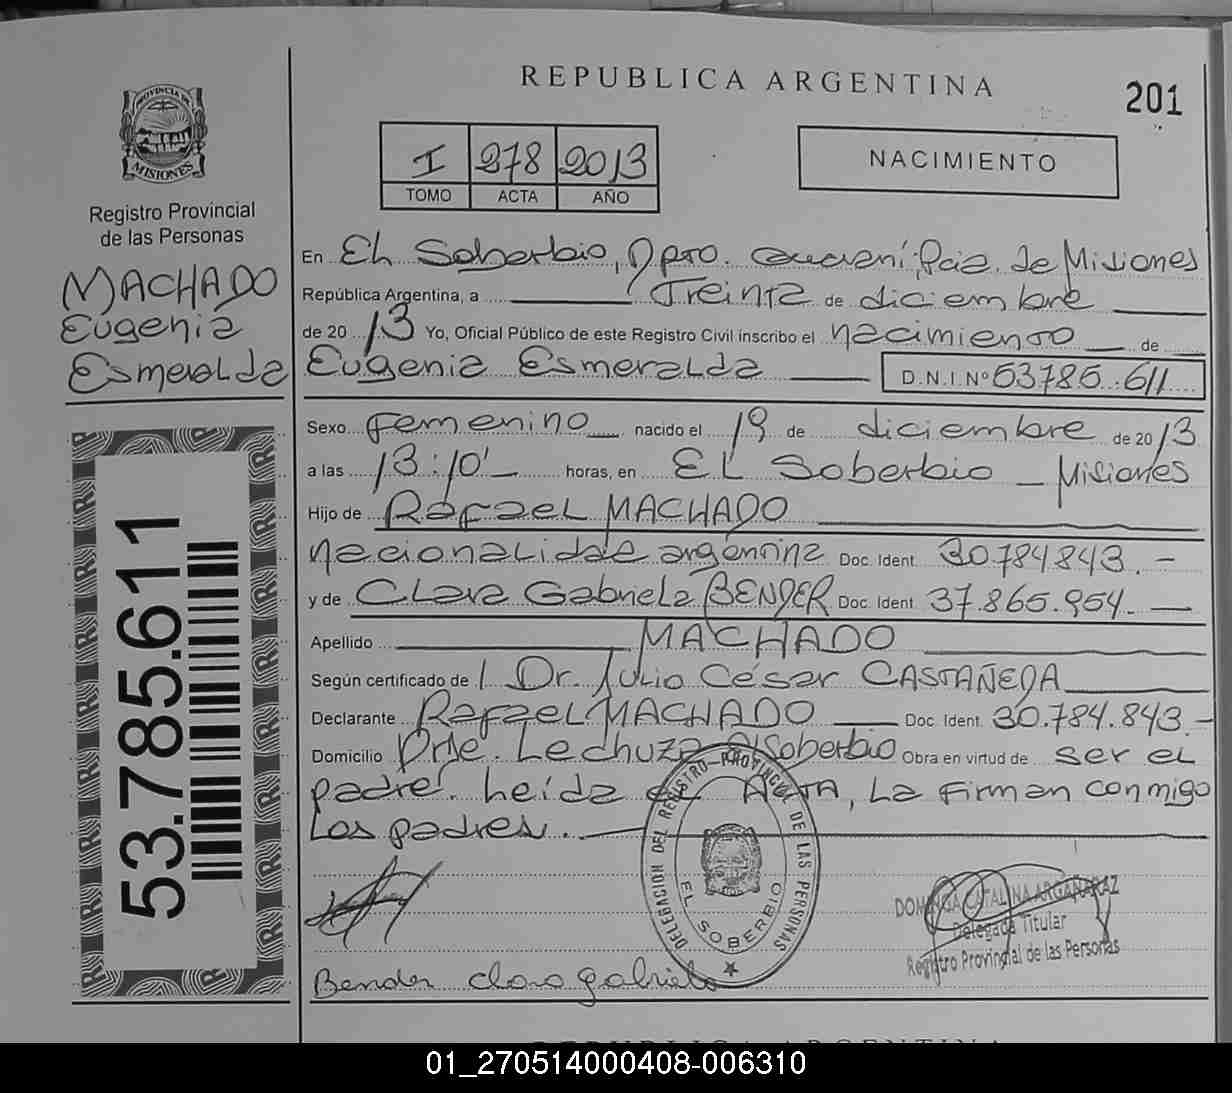 REPUBLICA ARGENTINA
201
PROVINCIA DE
MISIONES
Registro Provincial
de las Personas
MACHADO
Eugenia
Esmeralda
53.785.611
I 278 2013
TOMO ACTA AÑO
NACIMIENTO
En El Soberbio, Dpto. Guaraní, Pcia. de Misiones
República Argentina, a Treinta de diciembre
de 2013 Yo, Oficial Público de este Registro Civil inscribo el nacimiento de
Eugenia Esmeralda D.N.I.Nº 53785.611
Sexo Femenino nacido el 19 de diciembre de 2013
a las 13:10' horas, en EL Soberbio - Misiones
Hijo de Rafael MACHADO
nacionalidad argentina Doc. Ident. 30.784843.-
y de Clara Gabriela BENDER Doc. Ident. 37.865.954.-
Apellido MACHADO
Según certificado de Dr. Julio César CASTAÑEDA
Declarante Rafael MACHADO Doc. Ident. 30.784.843-
Domicilio Pje. Lechuza ElSoberbio Obra en virtud de ser el
padre. Leída el ACTA, La Firman conmigo
Los padres.
DELEGACION DEL REGISTRO PROVINCIAL DE LAS PERSONAS
EL SOBERBIO
DOMINGA CATALINA ARGAÑARAZ
Delegada Titular
Registro Provincial de las Personas
Bender Clara gabriela
REPUBLICA ARGENTINA
01_270514000408-006310